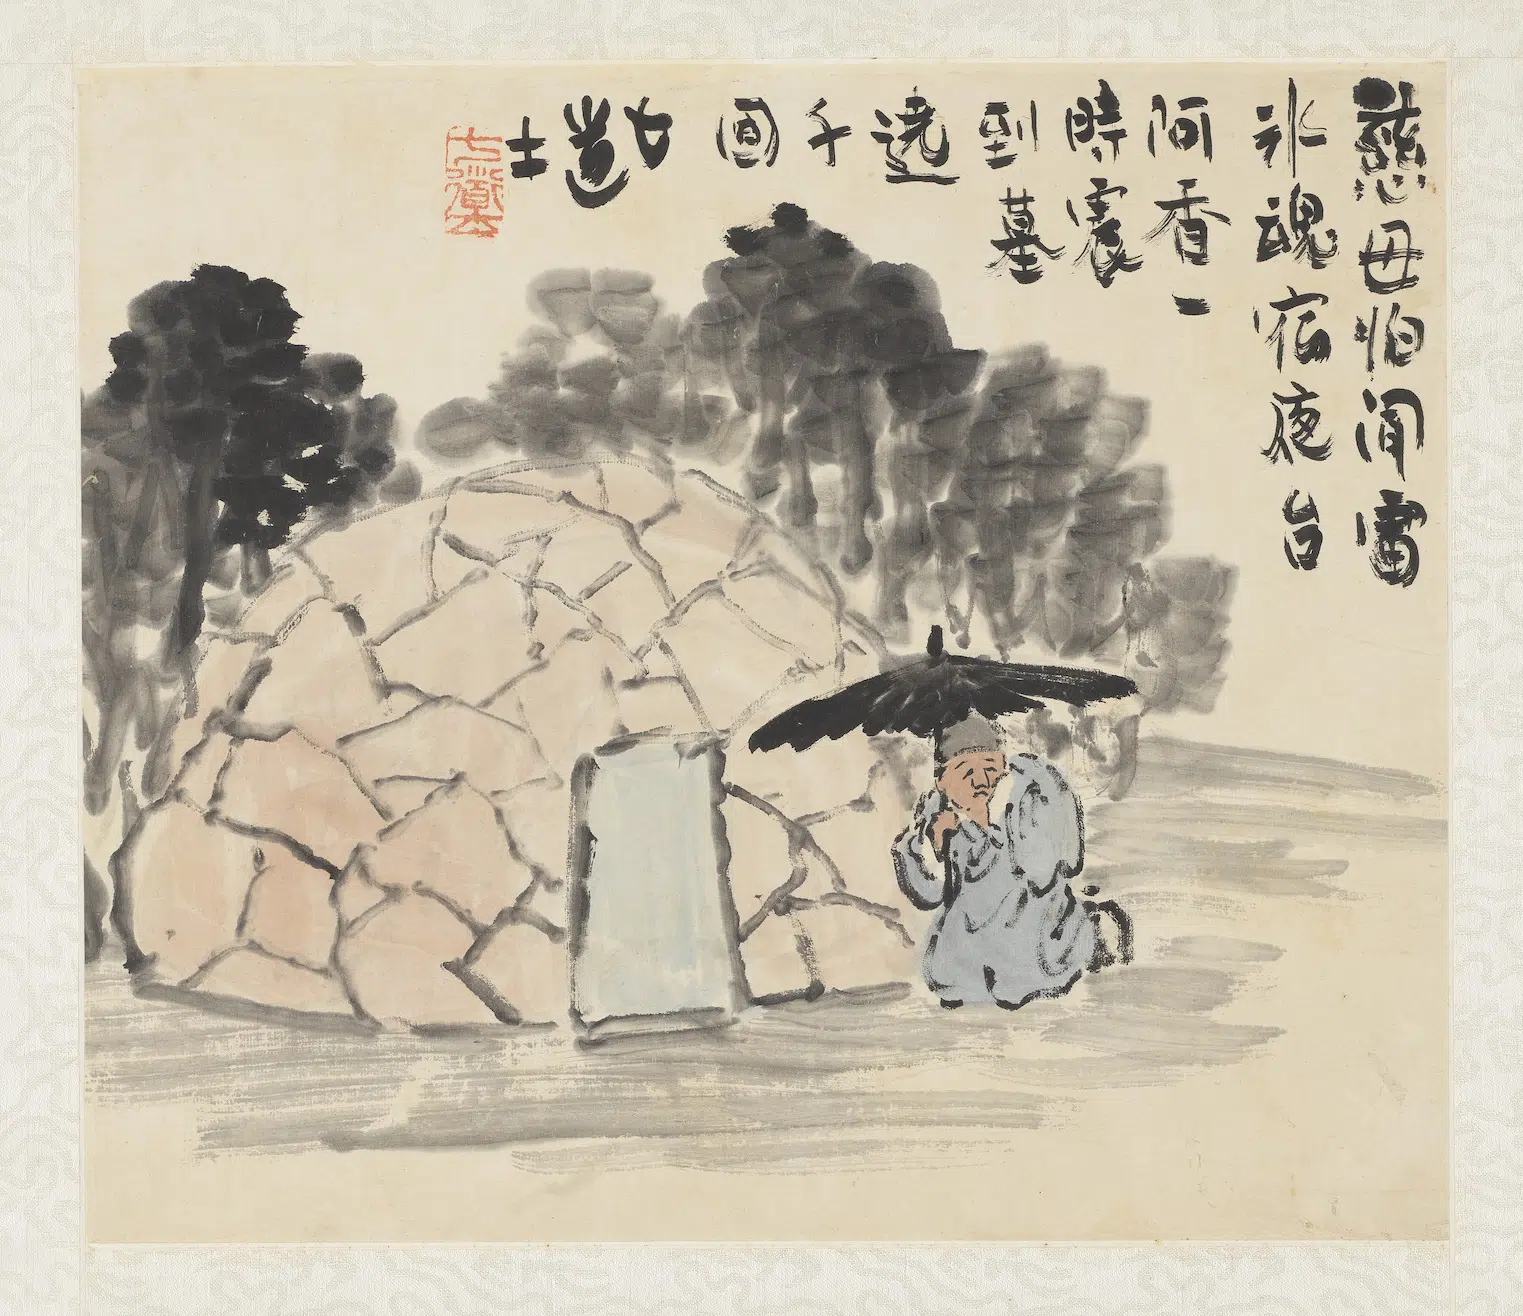 慈母怕聞雷
冰魂宿夜台
阿香一
時震
到墓
遶
千
回